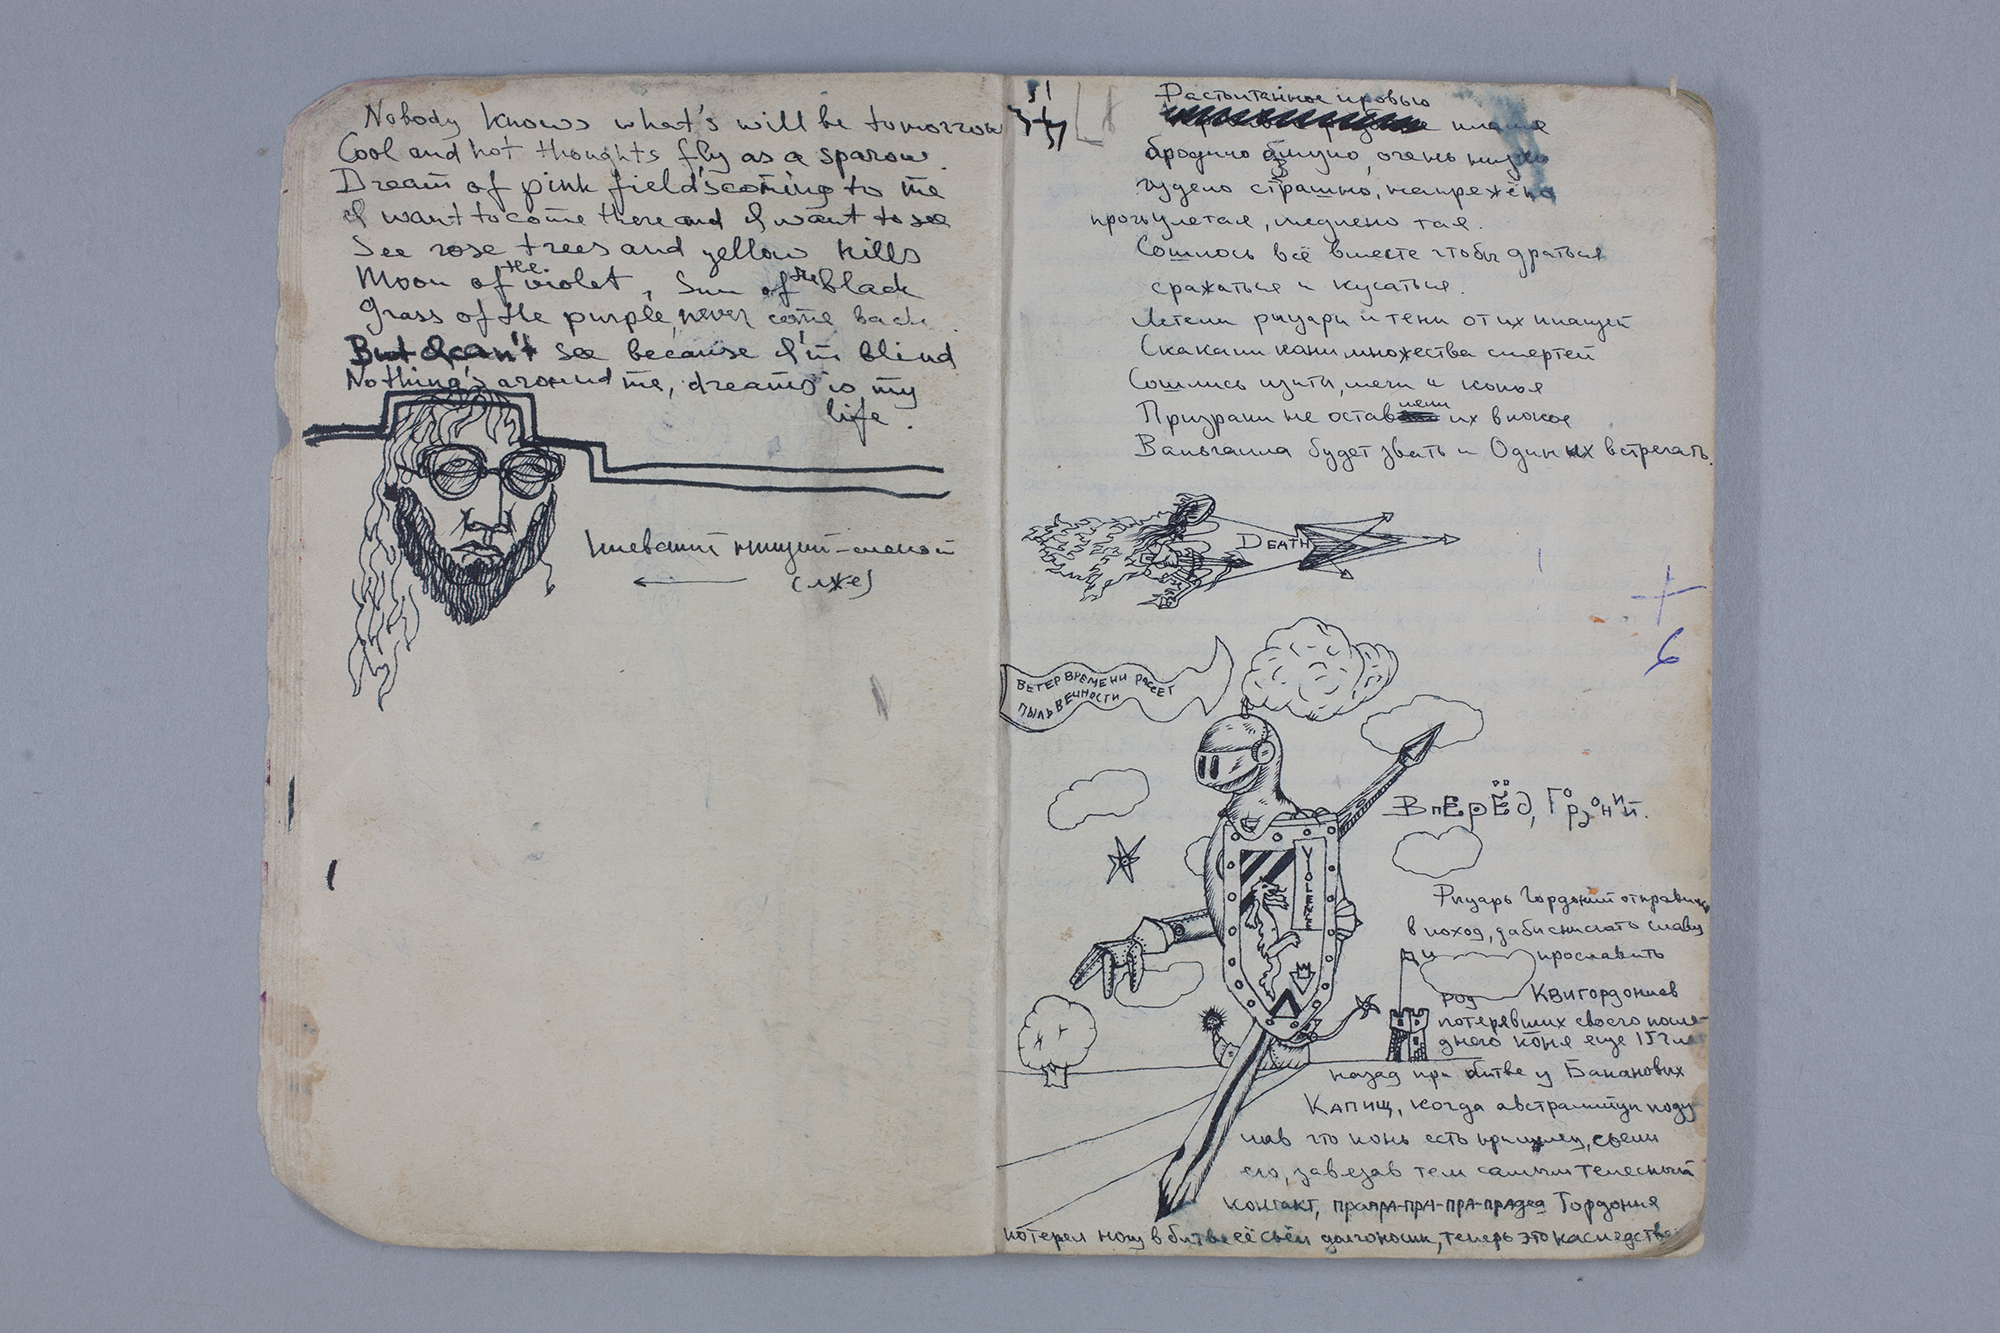 Nobody knows what's will be tomorrow
Cool and hot thoughts fly as a sparow.
Dream of pink field's coming to me
I want to come there and I want to see
See rose trees and yellow hills
Moon of the violet, Sun of the black
Grass of the purple, never come back.
But I can't see because I'm blind
Nothing's around me, dreams is my
life.
нищий-слепой
(лже)
кровью
пламя
бродило очень низко
гудело страшно, напряжёно
тая.
Сошлось всё вместе чтобы драться
сражаться и кусаться.
Летели рыцари и тени от их плащей
Скакали кони, множества смертей
Сошлись щиты, мечи и копья
Призраки не оставили их в покое
Вальгалла будет звать и Один их встречать.
DEATH
ВЕТЕР ВРЕМЕНИ РАССЕЕТ
ПЫЛЬ ВЕЧНОСТИ
ВПЕРЁД, Горзоний.
VIOLENCE
6
Рыцарь Гордоний отправился
в поход, дабы снискать славу
и прославить
род Квигордониев
потерявших своего после-
днего коня еще 157 лет
назад при битве у Бакановых
КАПИЩ, когда австралийцы поду-
мав что конь есть пришлец, съели
его, завезав тем самым телесный
контакт, прапра-пра-пра-прадед Гордония
потерял ногу в битве её съел долгоносик, теперь это наследство